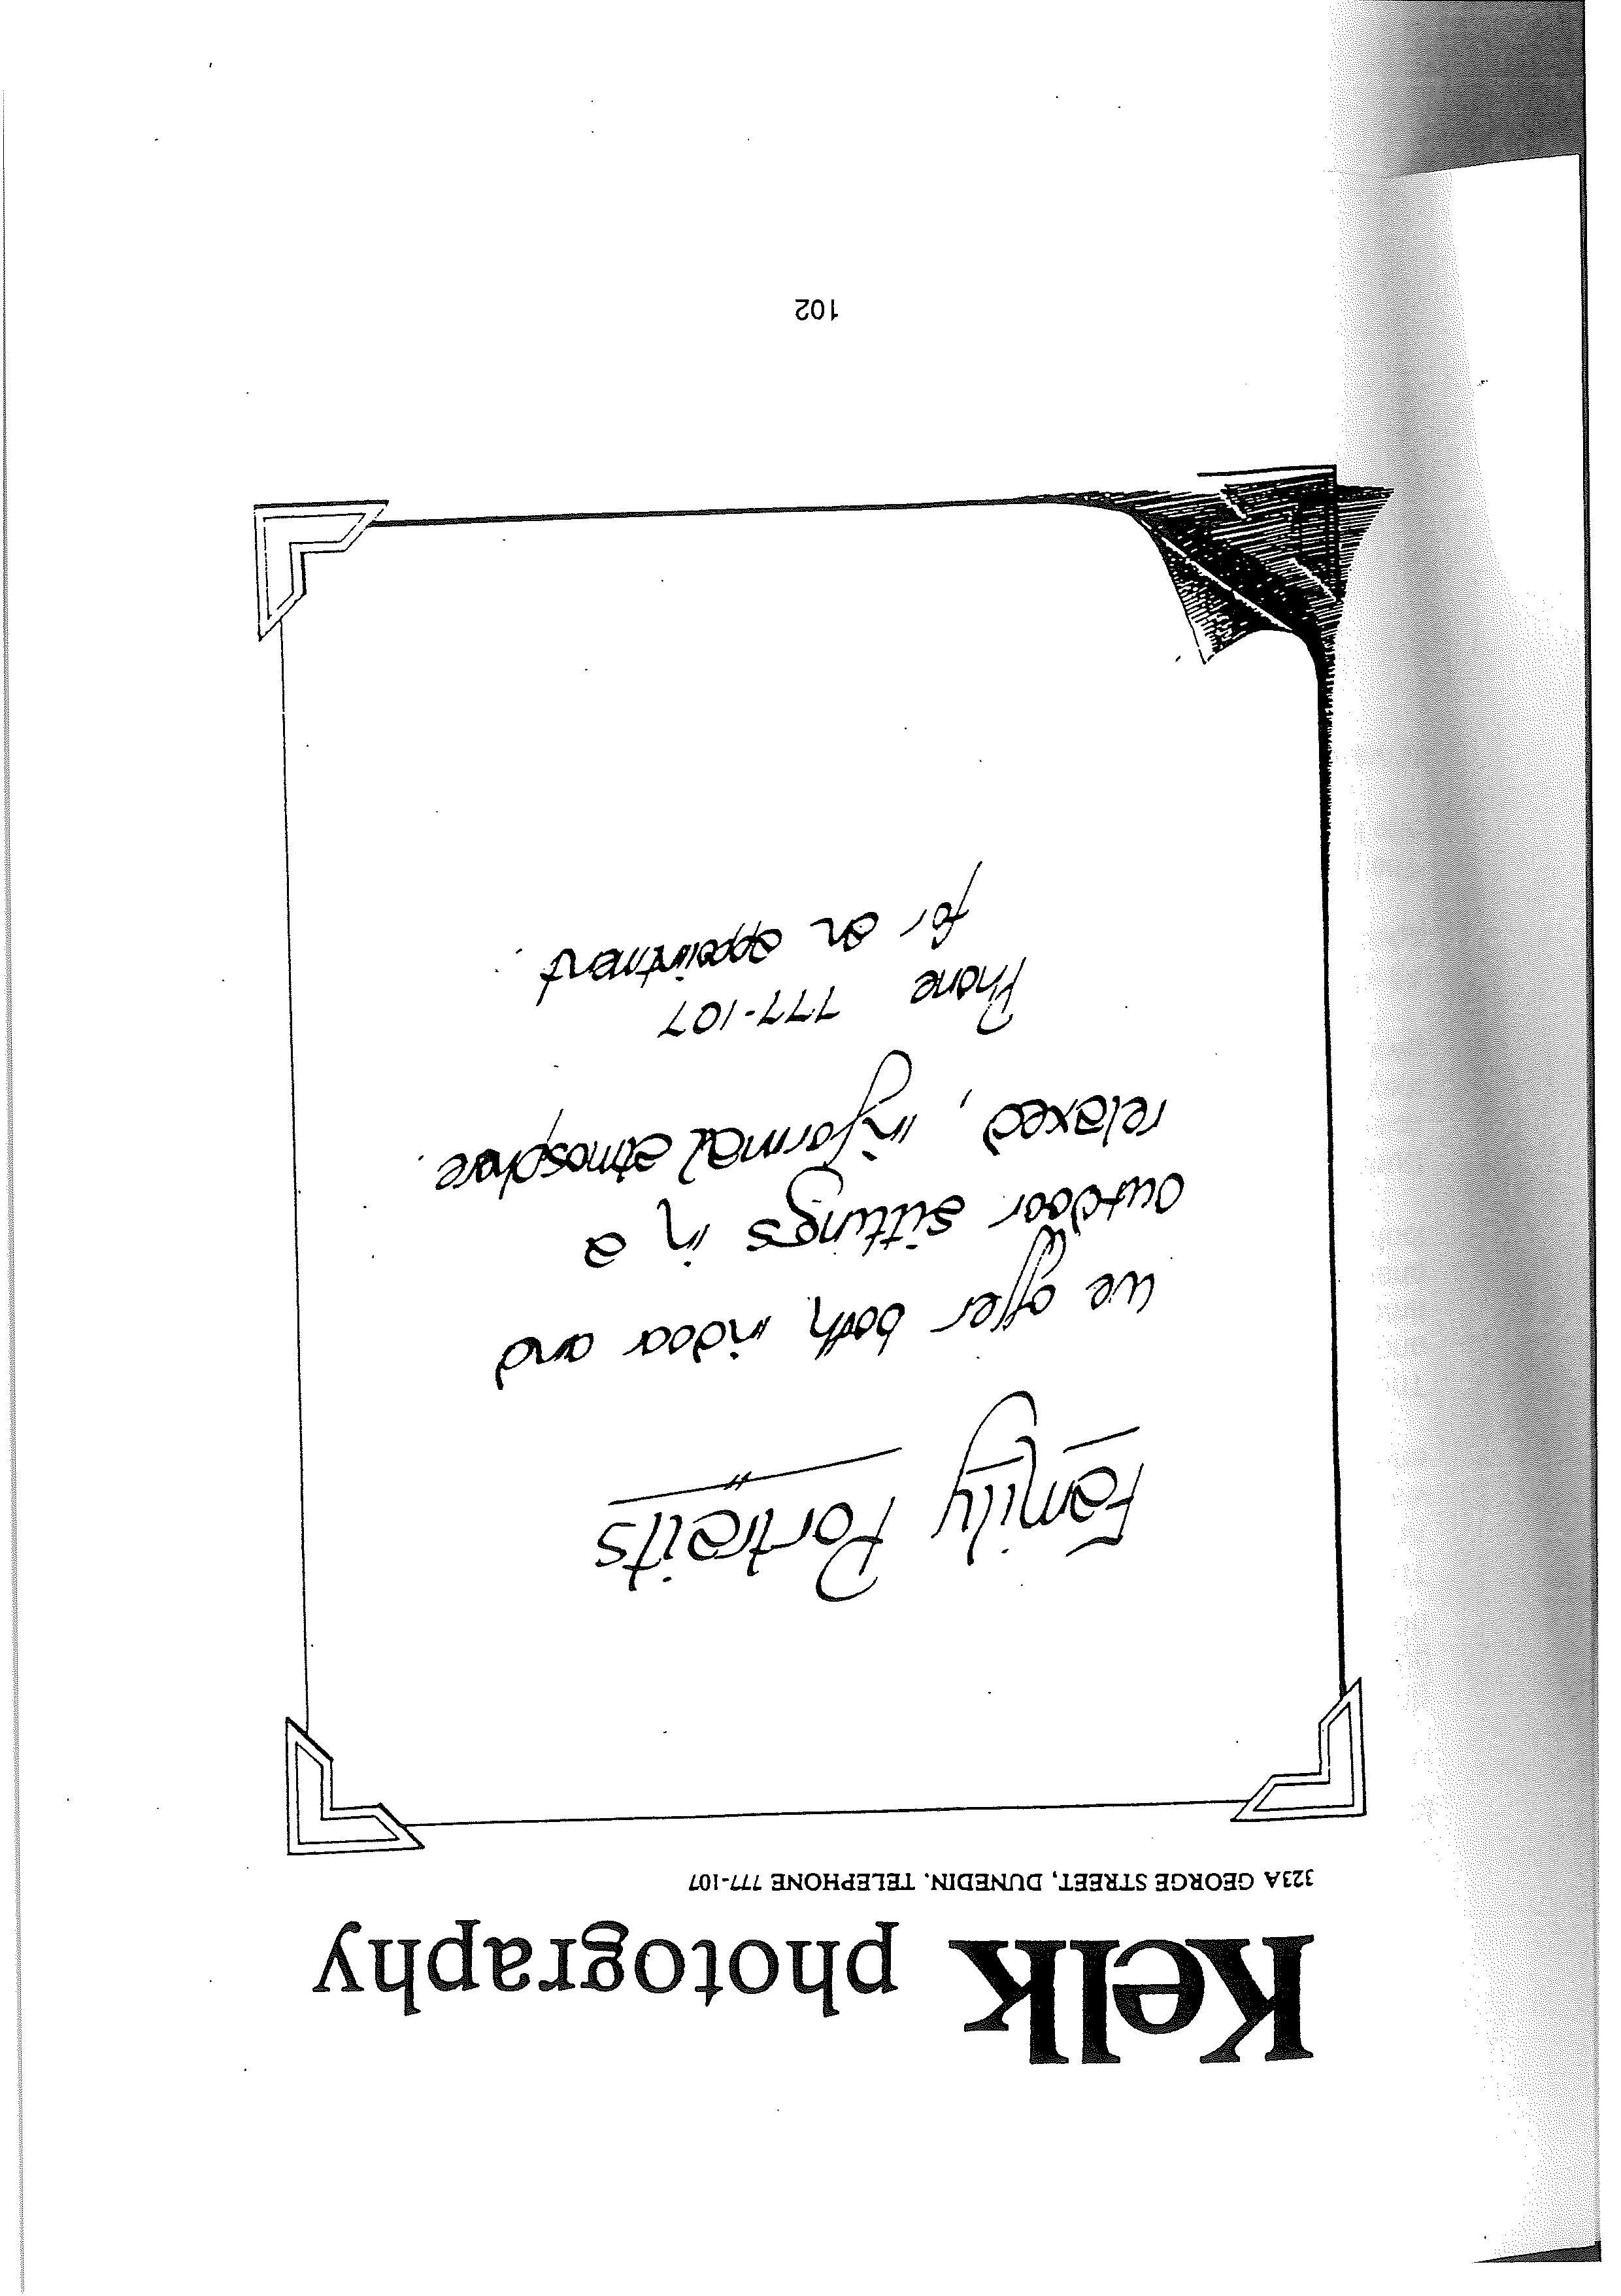 Kelk photography
323A GEORGE STREET, DUNEDIN. TELEPHONE 777-107
Family Portraits
we offer both indoor and
outdoor sittings in a
relaxed, informal atmosphere.
Phone 777-107
for an appointment.
102